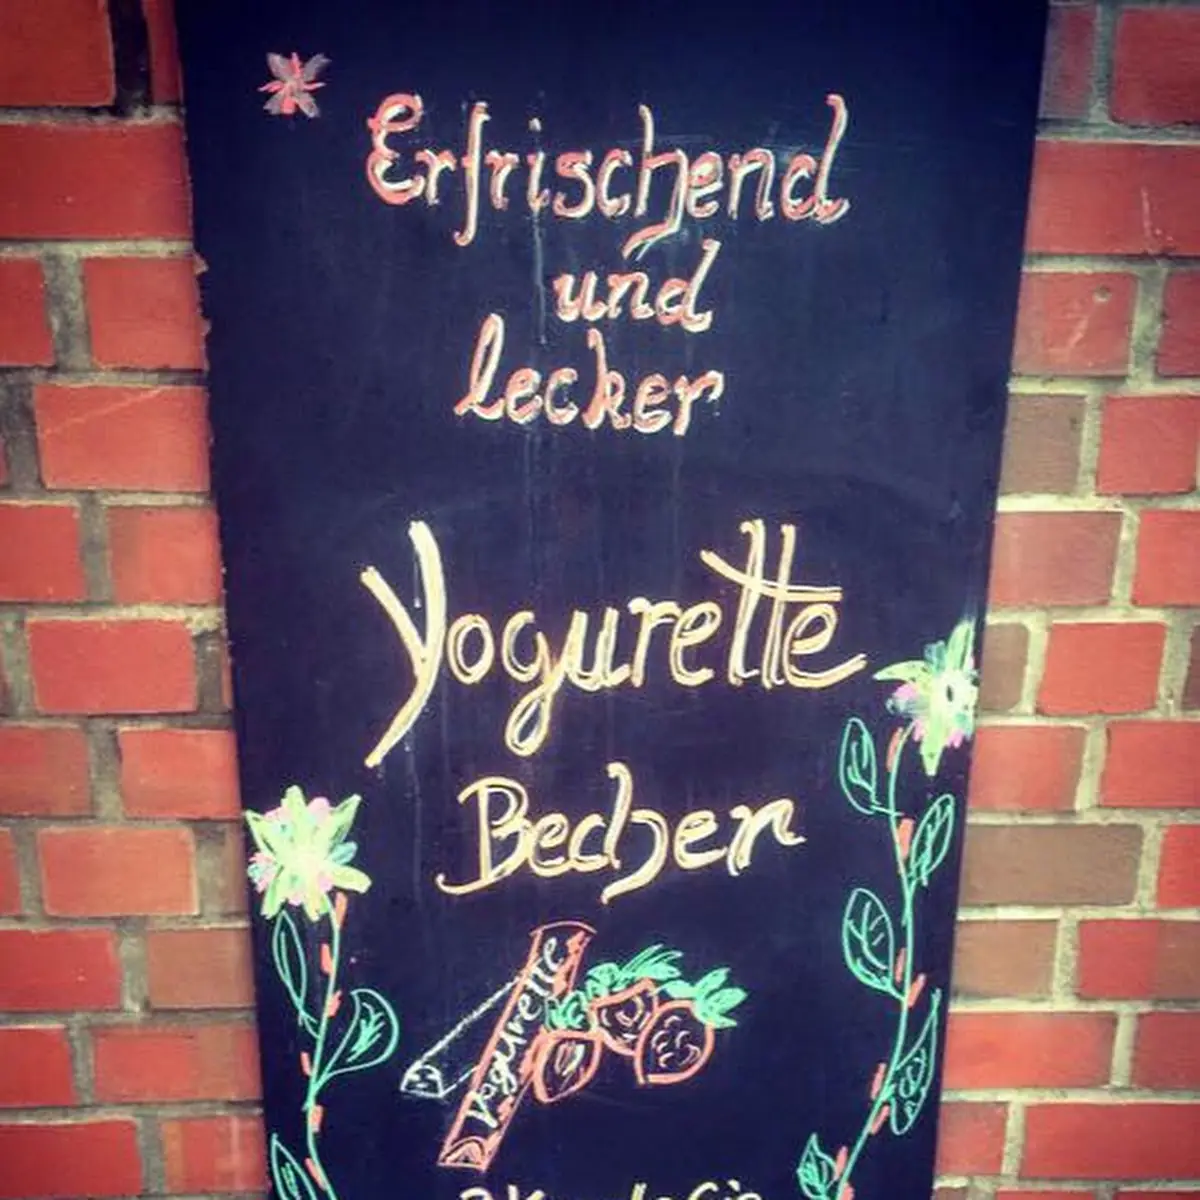 Erfrischend
und
lecker
Yogurette
Becher
Yogurette